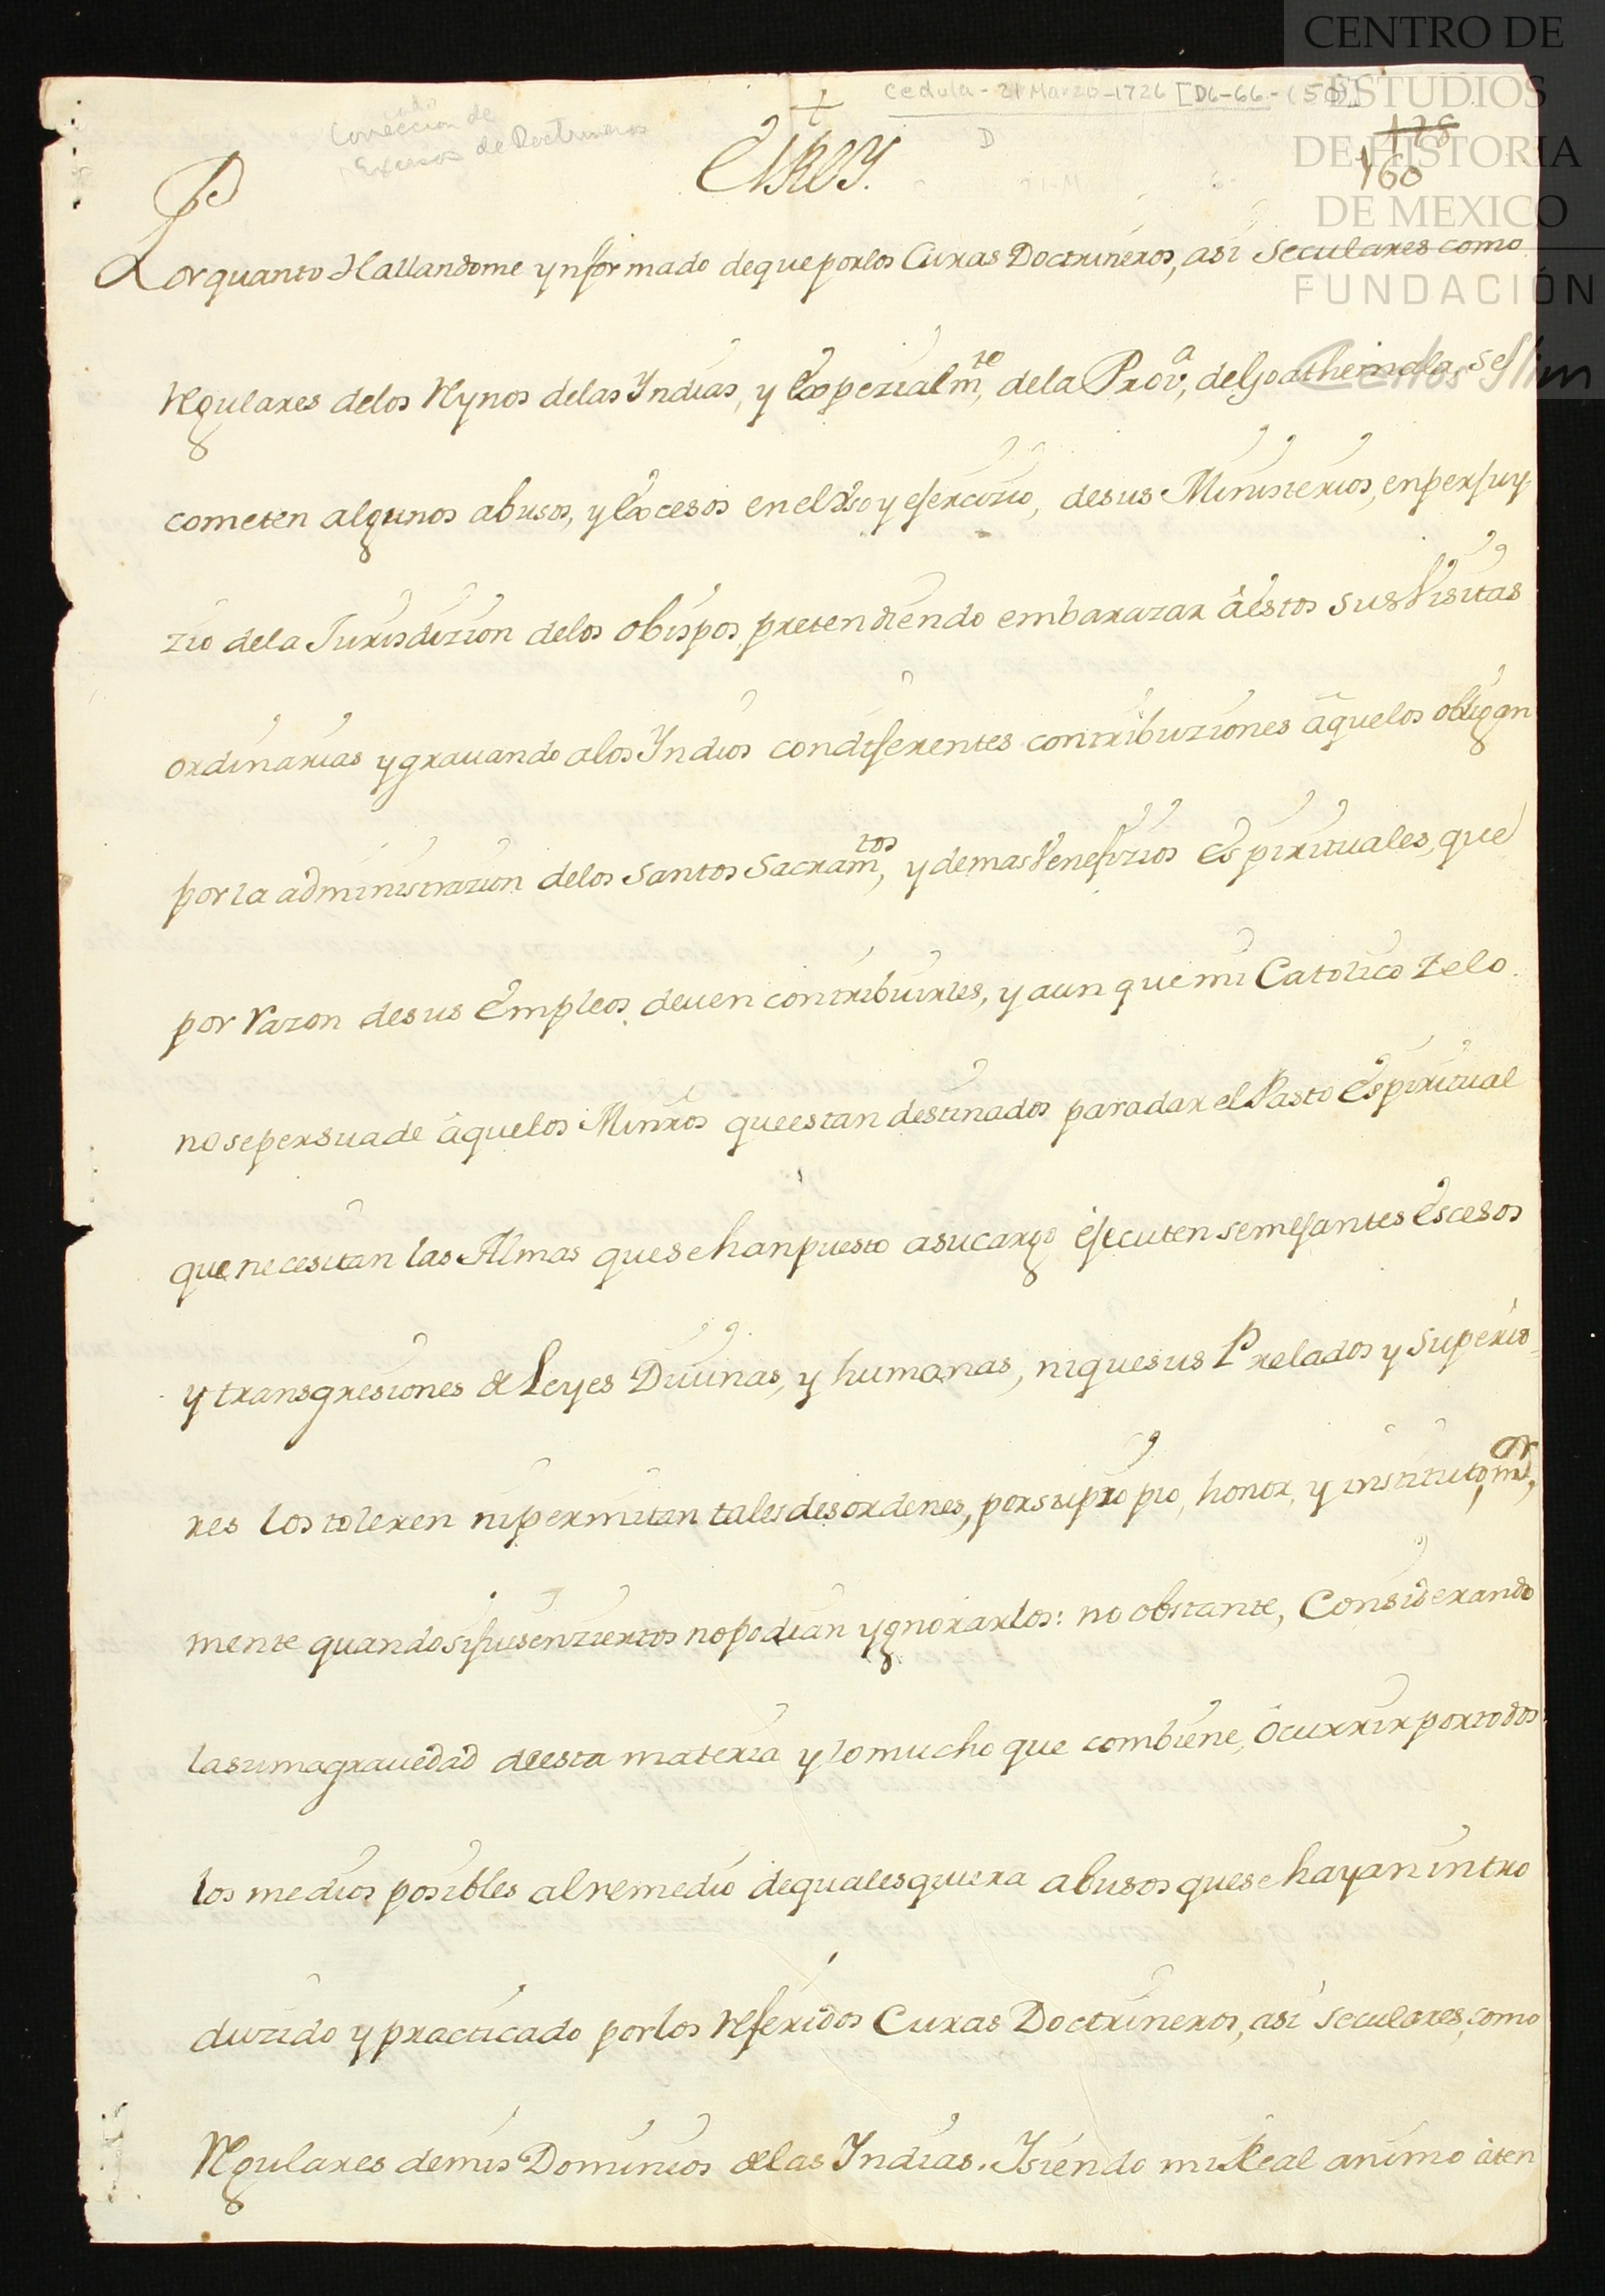 CENTRO DE
ESTUDIOS
DE HISTORIA
DE MEXICO
FUNDACIÓN
Carlos Slim
Cedula - 21 Marzo - 1726 [D6-66-(50)]
D
Corrección de
Excesos de Doctrineros
128
160
El Rey.
Por quanto Hallandome ynformado deque por los Curas Doctrineros, asi Seculares como
Regulares delos Reynos delas Yndias, y Expezialmte, dela Prova, de Goathemala, se
cometen algunos abusos, y Excesos en el Vso y ejercizio, desus Ministerios, enperjuy
zio dela Jurisdizion delos obispos, pretendiendo embarazar àéstos sus Visitas
ordinarias y grauando alos Yndios condiferentes contribuziones àquelos obligan
por la administrazion delos Santos Sacramtos, y demas Venefizios Espirituales, que
por razon desus Empleos, deuen contribuirles, y aun que mi Catolico Zelo
no sepersuade àquelos Minros queestan destinados paradar el Pasto Espiritual
que necesitan las Almas quesehanpuesto asucargo éjecuten semejantes Escesos
y transgresiones de Leyes Diuinas, y humanas, niquesus Prelados y Superio
res los toleren nipermitan tales desordenes, porsupropio, honor, y instituto, mr,
mente quandosifuesenziertos nopodian ygnorarlos: no obstante, Considerando
lasumagrauedad deesta materia y lomucho que combiene, òcurrir portodos
los medios posibles alremedio dequalesquiera abusos quese hayan intro
duzido y practicado porlos referidos Curas Doctrineros, asi seculares, como
Regulares demis Dominios delas Yndias. Ysiendo mi Real animo àten